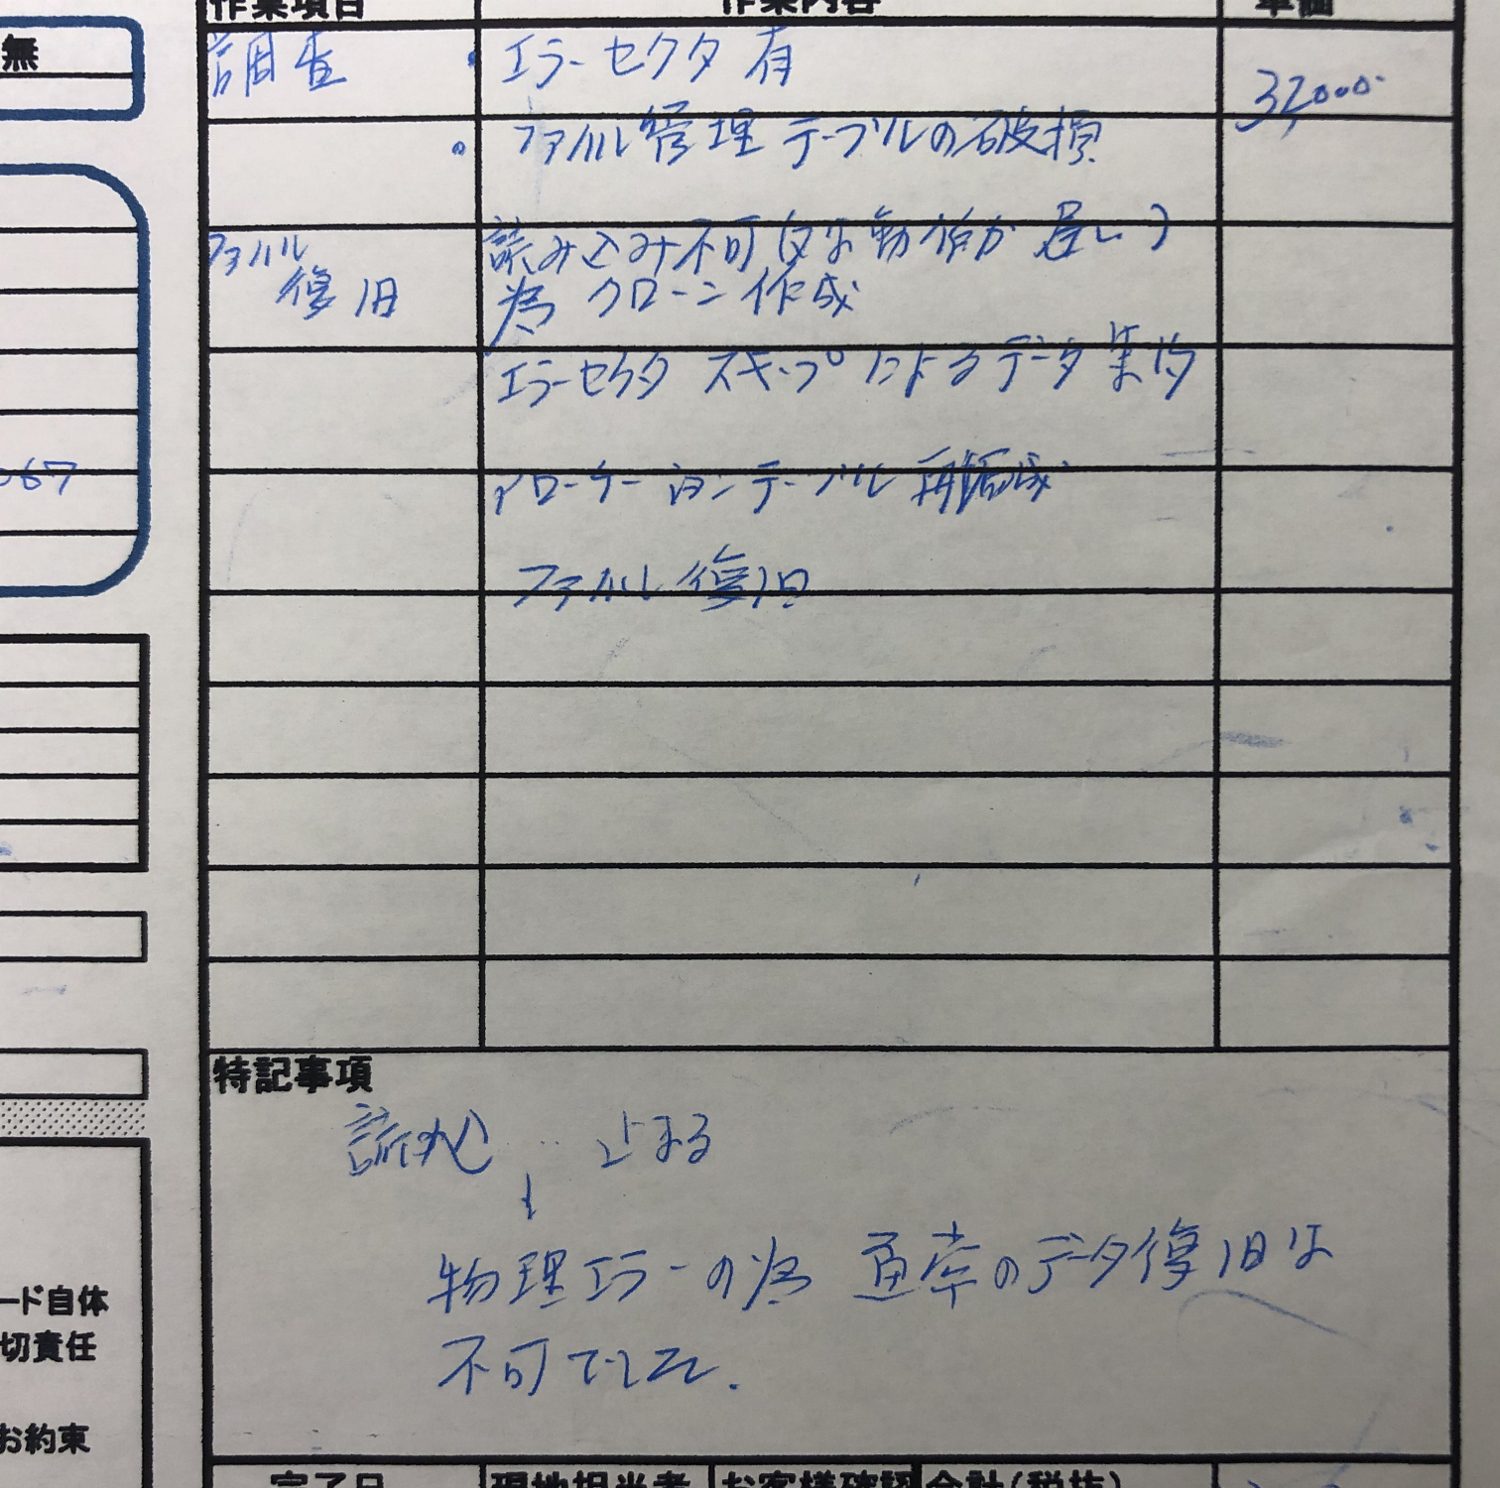 作業項目 作業内容 単価
無
調査 ・エラーセクタ 有 32,000
・ファイル管理テーブルの破損
ファイル 読み込み不可
復旧 為 クローン作成
エラーセクタ スキップによるデータ集約
067
アロケーションテーブル 再構成
ファイル復旧
特記事項
読込 … 止まる
↓
物理エラーの為 通常のデータ復旧は
不可でした.
ード自体
切責任
お約束
完了日 現地担当者 お客様確認 合計(税抜)